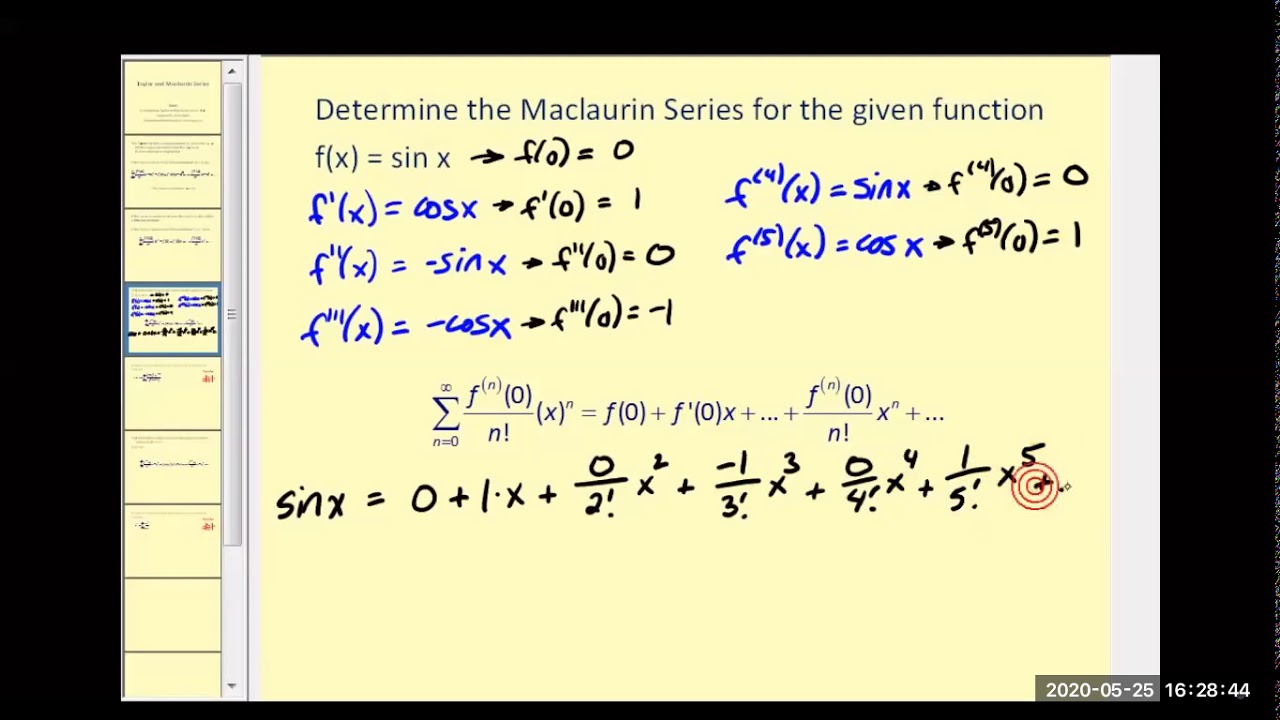 Taylor and Maclaurin Series
Determine the Maclaurin Series for the given function
f(x) = sin x → f(0) = 0
f'(x) = cosx → f'(0) = 1
f''(x) = -sinx → f''(0) = 0
f'''(x) = -cosx → f'''(0) = -1
f^(4)(x) = sinx → f^(4)(0) = 0
f^(5)(x) = cosx → f^(5)(0) = 1
∑_{n=0}^{∞} f^(n)(0)/n! (x)^n = f(0) + f'(0)x + ... + f^(n)(0)/n! x^n + ...
sinx = 0 + 1·x + 0/2! x^2 + -1/3! x^3 + 0/4! x^4 + 1/5! x^5 + .
2020-05-25 16:28:44